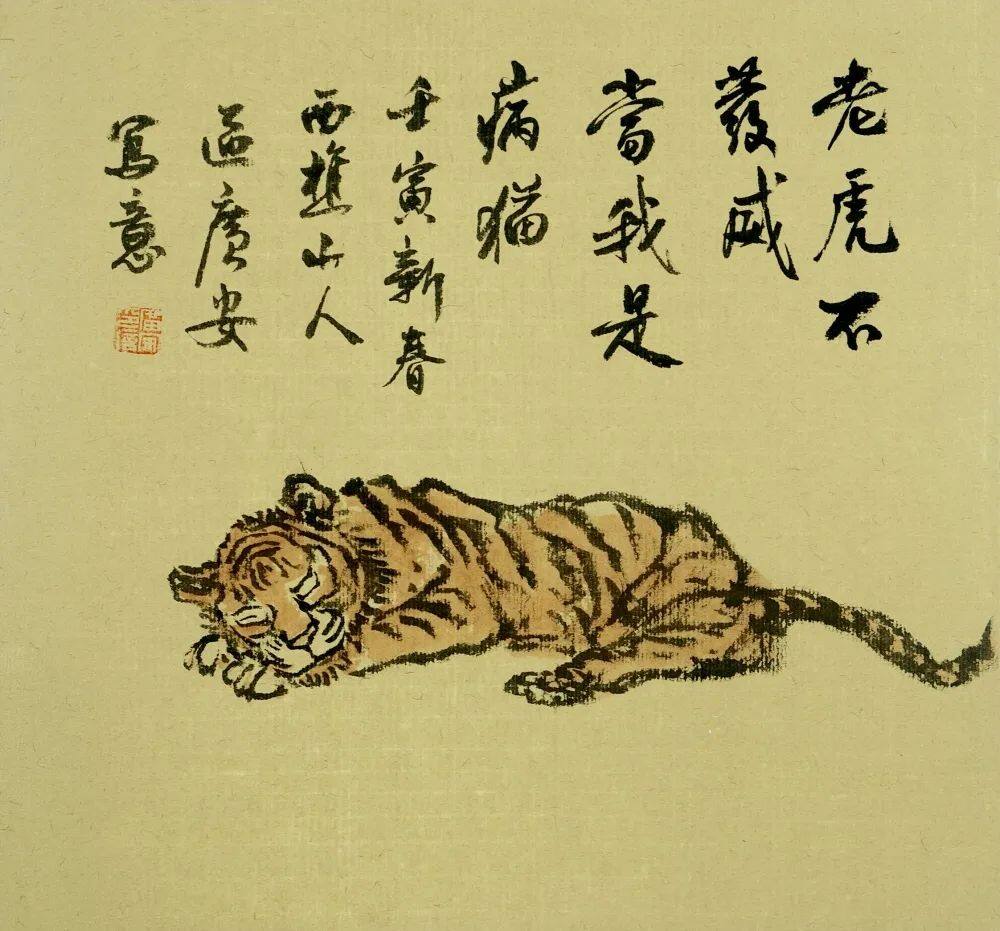 老虎不
發威
當我是
病猫
壬寅新春
西樵山人
區廣安
寫意